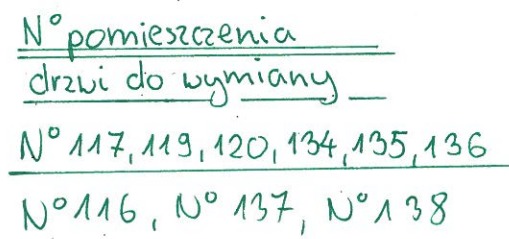 N° pomieszczenia
drzwi do wymiany
N° 117, 119, 120, 134, 135, 136
N° 116, N° 137, N° 138